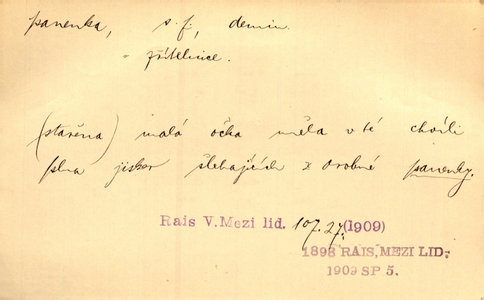 panenka, s. f., demin.
- zřítelnice.
(stařena) malá očka měla v té chvíli
plna jisker šlehajících z drobné panenky.
Rais V. Mezi lid. 107. 27. (1909)
1898 RAIS, MEZI LID-
1909 SP 5.